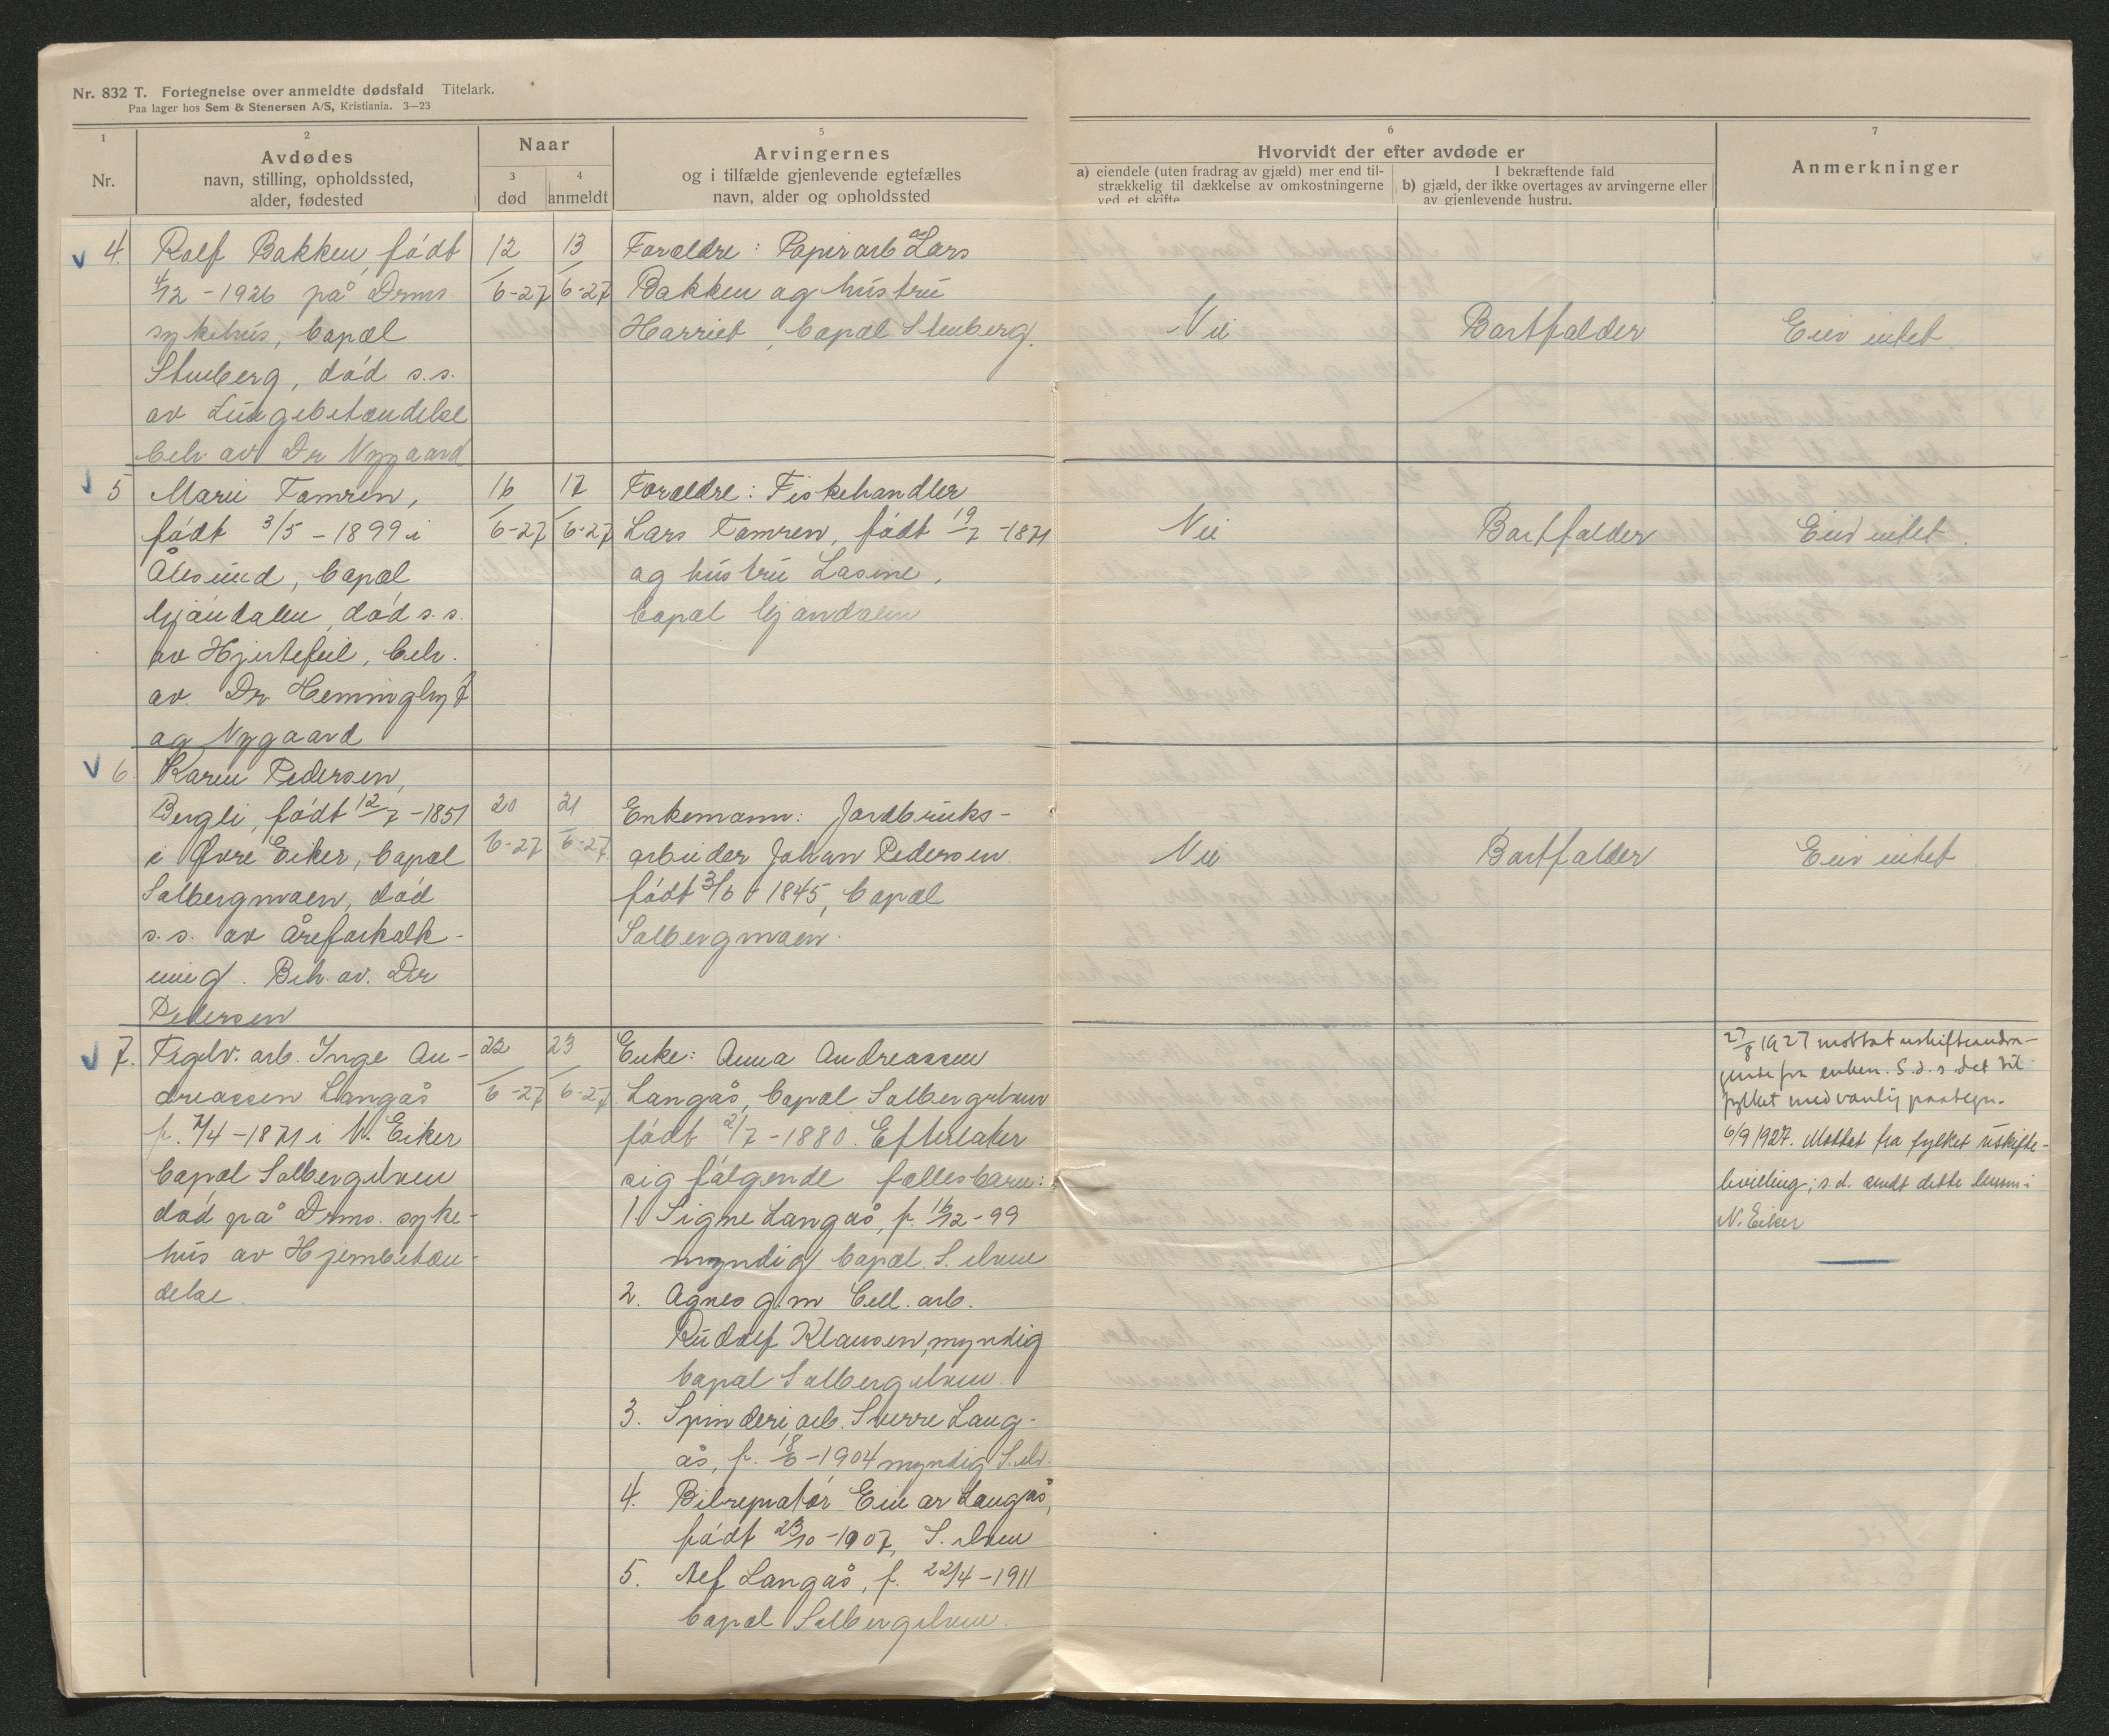 Nr. 832 T. Fortegnelse over anmeldte dødsfald Titelark.
Paa lager hos Sem & Stenersen A/S, Kristiania. 3—23
1
Nr.
2
Avdødes
navn, stilling, opholdssted,
alder, fødested
Naar
3
død
4
anmeldt
5
Arvingernes
og i tilfælde gjenlevende egtefælles
navn, alder og opholdssted
6
Hvorvidt der efter avdøde er
a) eiendele (uten fradrag av gjæld) mer end til-
strækkelig til dækkelse av omkostningerne
ved et skifte.
I bekræftende fald
b) gjæld, der ikke overtages av arvingerne eller
av gjenlevende hustru.
7
Anmerkninger
4. Rolf Bakken, født
/12 - 1926 på Drms.
sykehus, bopæl
Stenberg, død s.s.
av Lungebetændelse
beh. av Dr Nygaard
12/6-27
13/6-27
Forældre: Papirarb Lars
Bakken og hustru
Harriet, bopæl Stenberg.
Nei
Bortfalder
Eier intet.
5 Marie Tomren,
født 3/5 - 1899 i
Ålesund, bopæl
Mjøndalen, død s.s.
av Hjertefeil, beh.
av. Dr. Hemminghytt
og Nygaard
16/6-27
17/6-27
Forældre: Fiskehandler
Lars Tomren, født 19/7 - 1871
og hustru Lasine,
bopæl Mjøndalen
Nei
Bortfalder
Eier intet.
6. Karen Pedersen,
Bergli, født 12/7 - 1851
i Øvre Eiker, bopæl
Solbergmoen, død
s.s. av åreforkalk-
ning. Beh. av. Dr
Pedersen
20/6-27
21/6-27
Enkemann: Jordbruks-
arbeider Johan Pedersen.
født 3/6 1845, bopæl
Solbergmoen.
Nei
Bortfalder
Eier intet.
7. Teglv. arb. Inge An-
dreassen Langås
f. 7/4 - 1871 i N. Eiker
bopæl Solbergelven
død på Drms. syke-
hus av Hjernebetæn-
delse.
22/6-27
23/6-27
Enke: Anna Andreassen
Langås, bopæl Solbergelven
født 2/7 - 1880. Efterlater
sig følgende fællesbarn:
1. Signe Langås, f. 16/12 - 99
myndig bopæl. S. elven
2. Agnes g. m Cell. arb.
Rudolf Klausen, myndig
bopæl Solbergelven.
3. Spinderi arb. Sverre Lang-
ås, f. 18/6 - 1904 myndig S. elv.
4. Bilrepratør Einar Langås,
født 23/10 - 1907, S. elven
5. Alf Langås, f. 22/4 - 1911
bopæl Solbergelven.
27/8 1927 mottat uskifteandra-
gende fra enken. S. d. s det til
fylket med vanlig paategn.
6/9 1927. Mottat fra fylket uskifte-
bevilling; s.d. sendt dette lensm i
N. Eiker